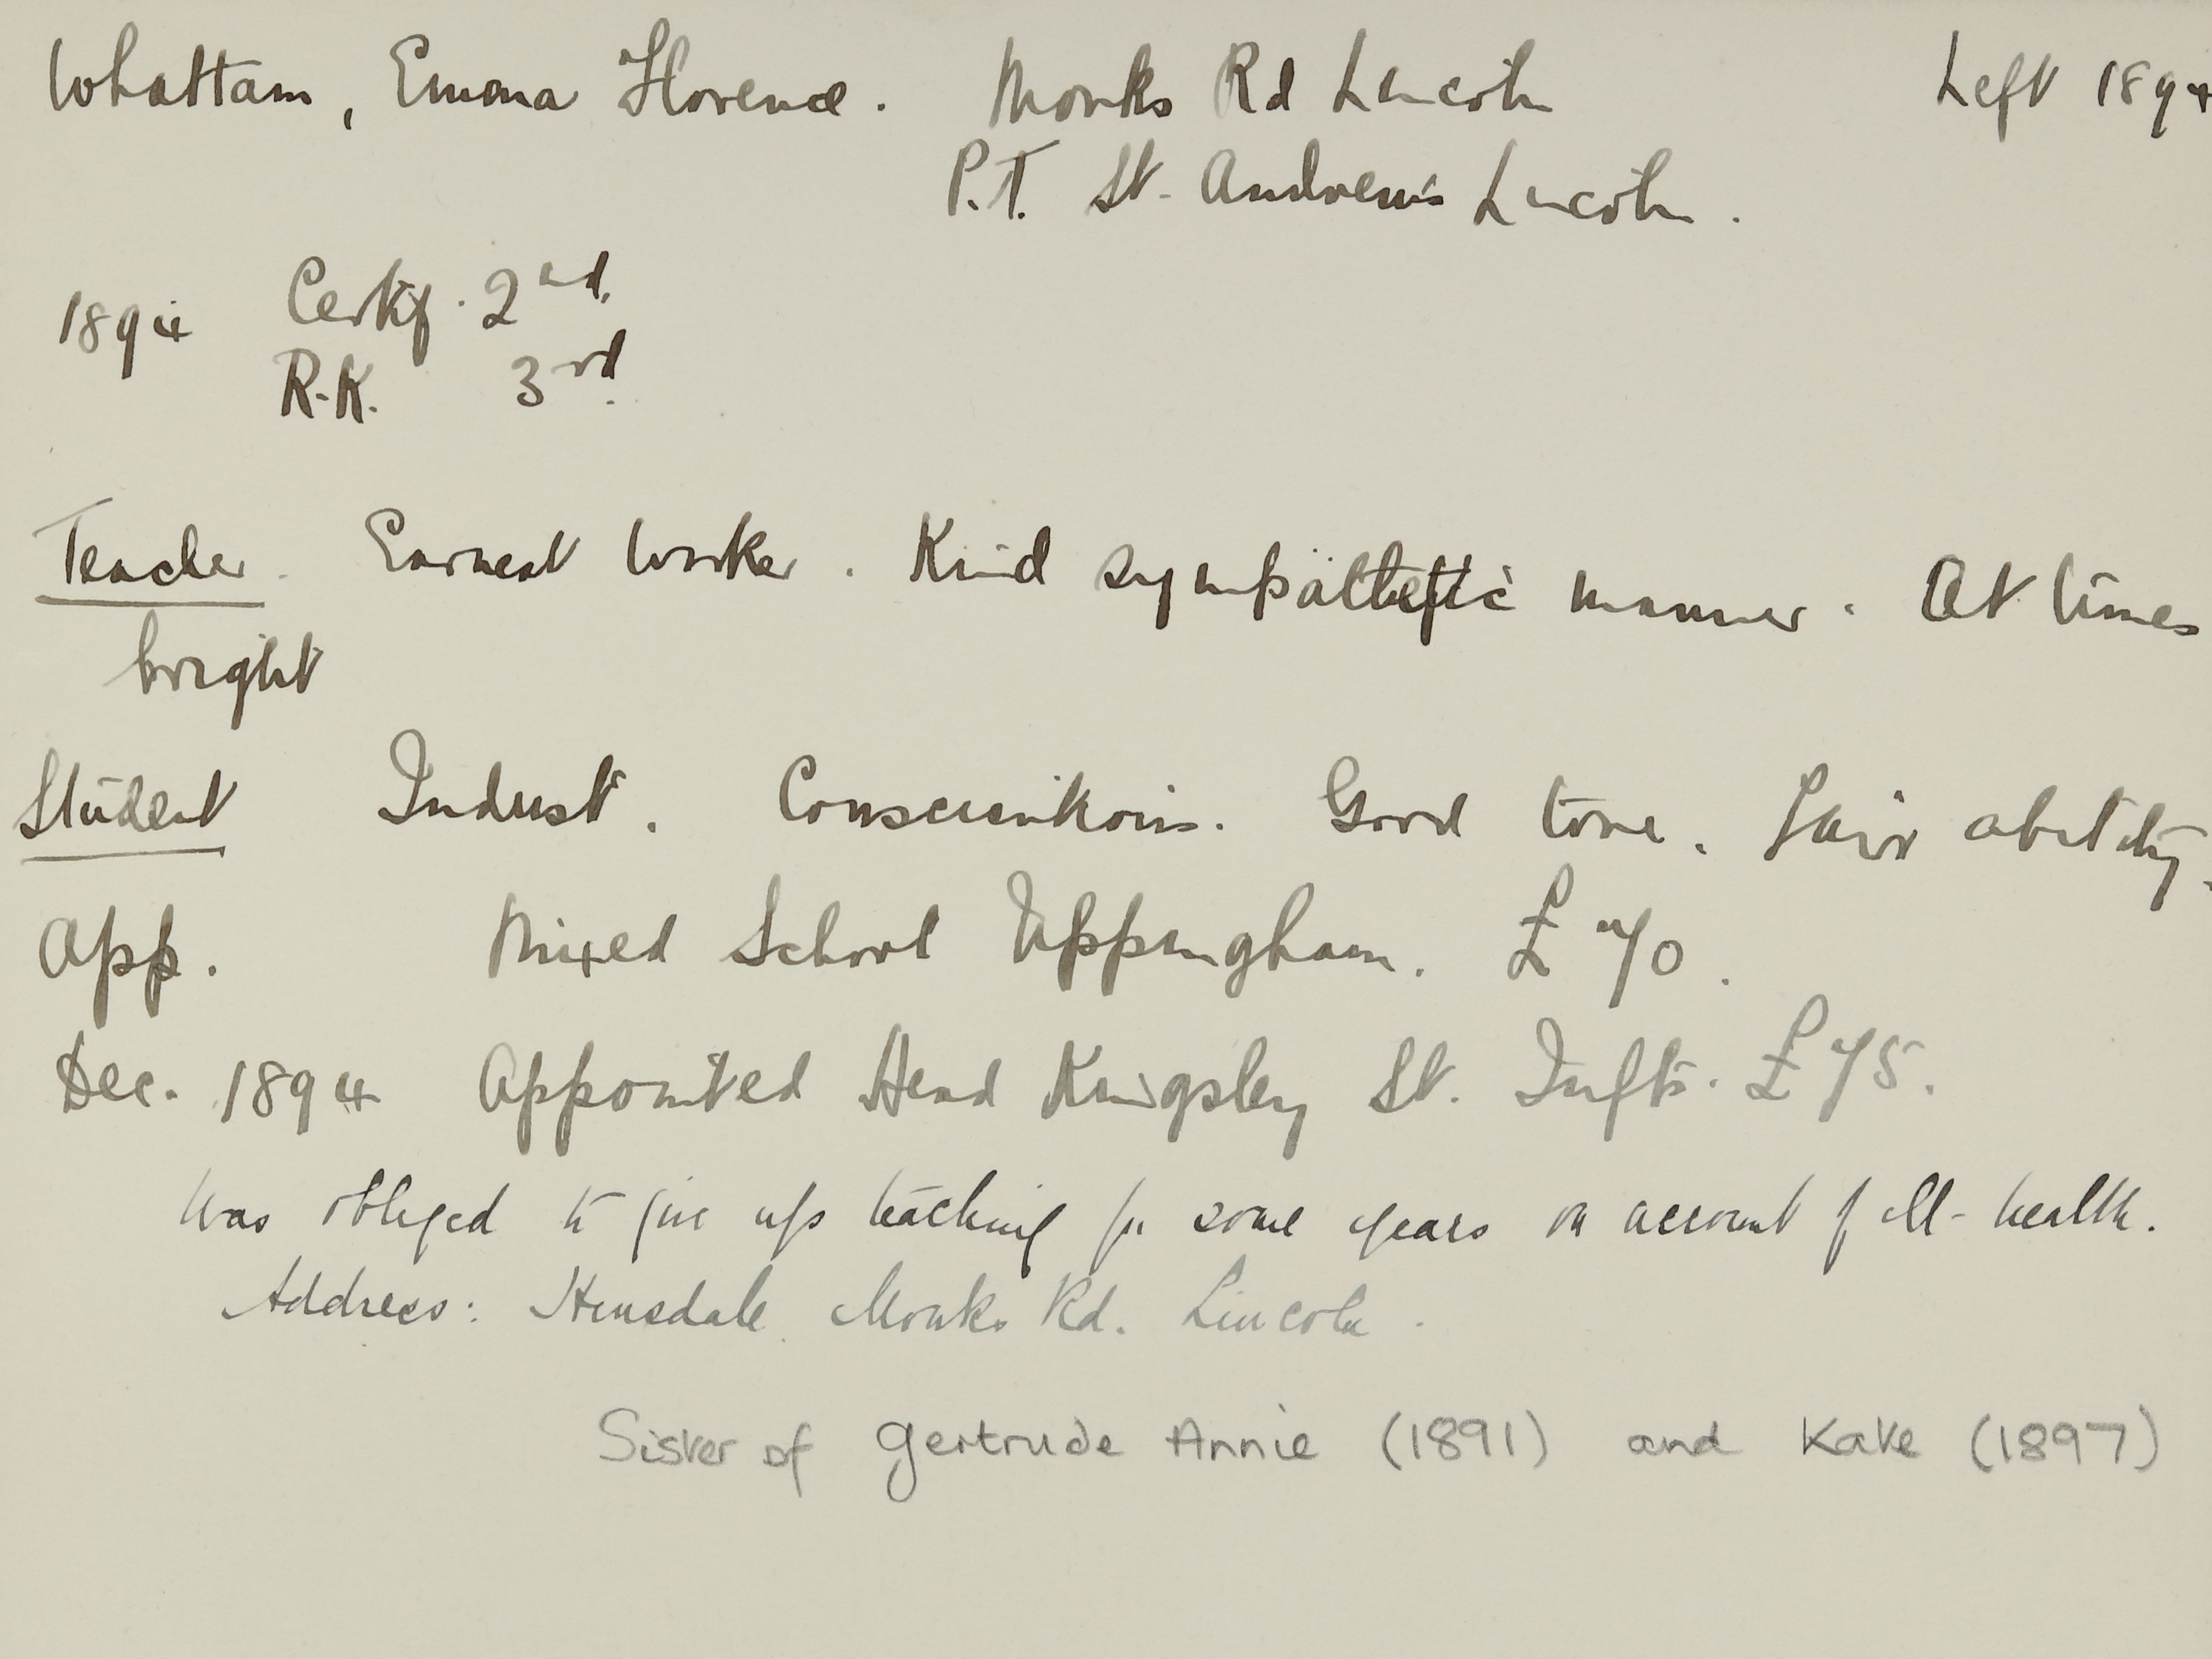 Whattam, Emma Florence. Monks Rd Lincoln Left 1894
P.T. St. Andrew's Lincoln.
1894 Certif. 2nd.
R.K. 3rd.
Teacher. Earnest worker. Kind sympathetic manner. At times
bright
Student Indust. Conscientious. Good tone. Fair ability.
App. Mixed School Uppingham. £70.
Dec. 1894 Appointed Head Kingsley St. Infts. £75.
Was obliged to give up teaching for some years on account of ill-health.
Address: Hinsdale. Monks Rd. Lincoln.
Sister of Gertrude Annie (1891) and Kate (1897)